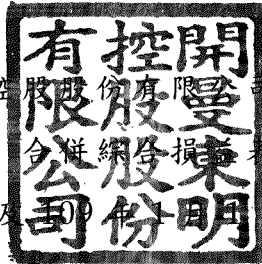 開曼東明
控股股份
有限公司
股份有限公司
合併綜合損益表
及 109 年 1 月 1